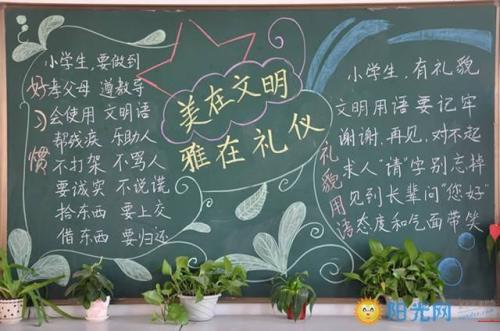 小学生,要做到
孝父母 遵教导
会使用 文明语
帮残疾 乐助人
不打架 不骂人
要诚实 不说谎
拾东西 要上交
借东西 要归还
好习惯
美在文明
雅在礼仪
小学生,有礼貌
文明用语要记牢
谢谢,再见,对不起
求人“请”字别忘掉
见到长辈问“您好”
态度和气面带笑
礼貌用语
阳光网